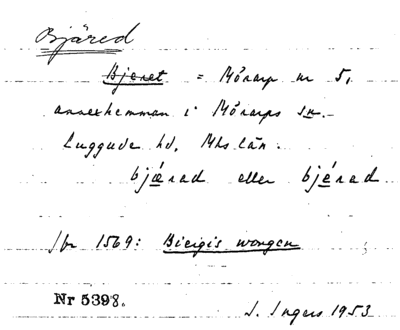 Bjäred
Bjeret = Mörarp nr 5,
annexhemman i Mörarps sn.
Luggude hd, Mhs län.
bjærad eller bjérad
Jfr 1569: Bieigis wongen
Nr 5398.
I. Ingers 1953